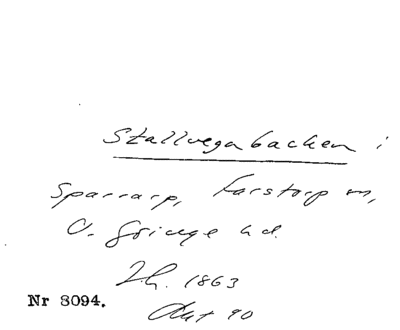 Stallvegabacken i
Sparrarp, Farstorp sn,
V. Göinge hd.
Lh. 1863
Akt 90
Nr 8094.